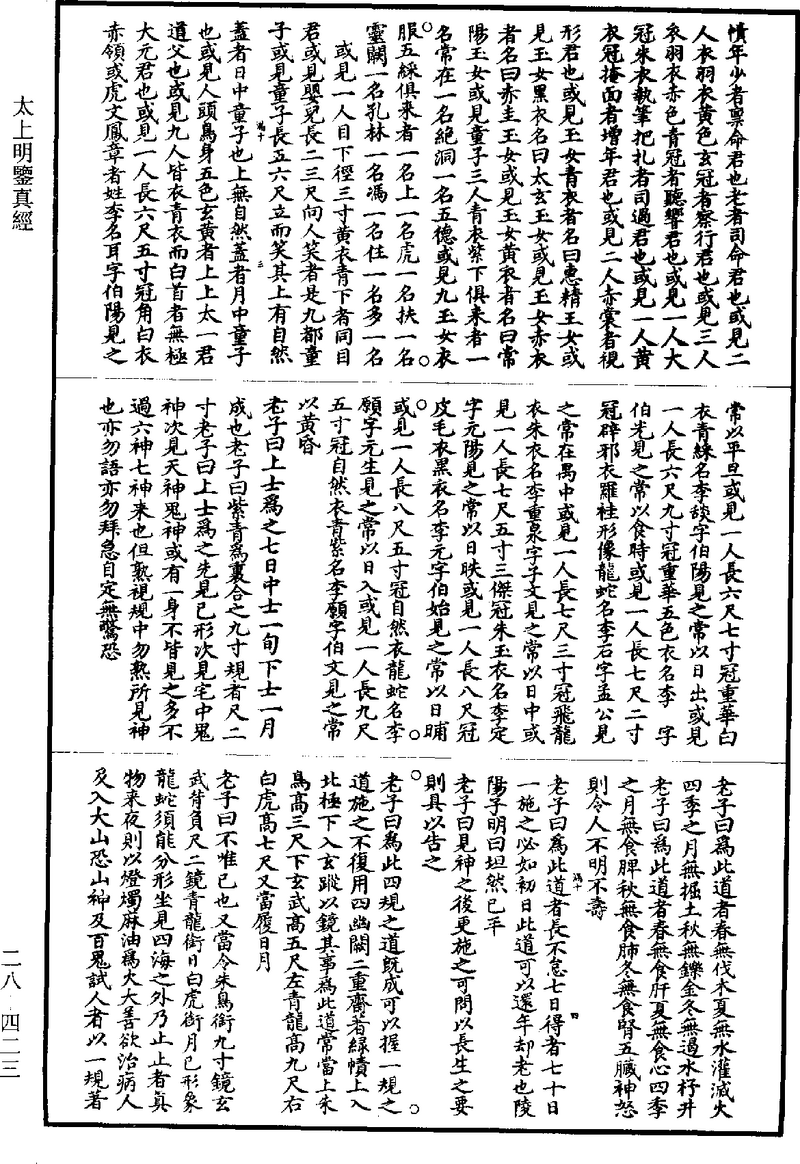 太上明鑒真經
幘年少者稟命君也老者司命君也或見二
人衣羽衣黃色玄冠者察行君也或見三人
衣羽衣赤色青冠者聽響君也或見一人大
冠朱衣執筆把札者司過君也或見一人黃
衣冠掩面者增年君也或見二人赤裳者視
形君也或見玉女青衣者名曰惠精玉女或
見玉女黑衣名曰太玄玉女或見玉女赤衣
者名曰赤圭玉女或見玉女黃衣者名曰常
陽玉女或見童子三人青衣紫下俱來者一
名常在一名絕洞一名五德或見九玉女衣
服五綵俱來者一名上一名虎一名扶一名
靈關一名孔林一名馮一名住一名多一名
或見一人目下徑三寸黃衣青下者同目
君或見嬰兒長二三尺向人笑者是九都童
子或見童子長五六尺立而笑其上有自然
蓋者日中童子也上無自然蓋者月中童子
也或見人頭鳥身五色玄黃者上上太一君
道父也或見九人皆衣青衣而白首者無極
大元君也或見一人長六尺五寸冠角白衣
赤領或虎文鳳章者姓李名耳字伯陽見之
常以平旦或見一人長六尺七寸冠重華白
衣青綵名李談字伯陽見之常以日出或見
一人長六尺九寸冠重華五色衣名李 字
伯光見之常以食時或見一人長七尺二寸
冠辟邪衣羅袿形像龍蛇名李石字孟公見
之常在禺中或見一人長七尺三寸冠飛龍
衣朱衣名李重泉字子文見之常以日中或
見一人長七尺五寸三傑冠朱玉衣名李定
字元陽見之常以日昳或見一人長八尺冠
皮毛衣黑衣名李元字伯始見之常以日晡
或見一人長八尺五寸冠自然衣龍蛇名李
願字元生見之常以日入或見一人長九尺
五寸冠自然衣青紫名李願字伯文見之常
以黃昏
老子曰上士為之七日中士一旬下士一月
成也老子曰紫青為裏合之九寸規者尺二
寸老子曰上士為之先見已形次見宅中鬼
神次見天神鬼神或有一身不皆見之多不
過六神七神來也但熟視規中勿熟所見神
也亦勿語亦勿拜急自定無驚恐
老子曰為此道者春無伐木夏無水灌滅火
四季之月無掘土秋無鑠金冬無遏水杼井
老子曰為此道者春無食肝夏無食心四季
之月無食脾秋無食肺冬無食腎五臟神怒
則令人不明不壽
老子曰為此道者長不怠七日得者七十日
一施之必如初日此道可以還年却老也陵
陽子明曰坦然已平
老子曰見神之後更施之可問以長生之要
則具以告之
老子曰為此四規之道既成可以握一規之
道施之不復用四幽闕二重齋著綠幘上入
北極下入玄蹤以鏡其事為此道常當上朱
鳥高三尺下玄武高五尺左青龍高九尺右
白虎高七尺又當履日月
老子曰不唯已也又當令朱鳥銜九寸鏡玄
武背負尺二鏡青龍銜日白虎銜月已形象
龍蛇須能分形坐見四海之外乃止上者真
物來夜則以燈燭麻油為火大善欲治病人
及入大山恐山神及百鬼試人者以一規著
二八-四二三